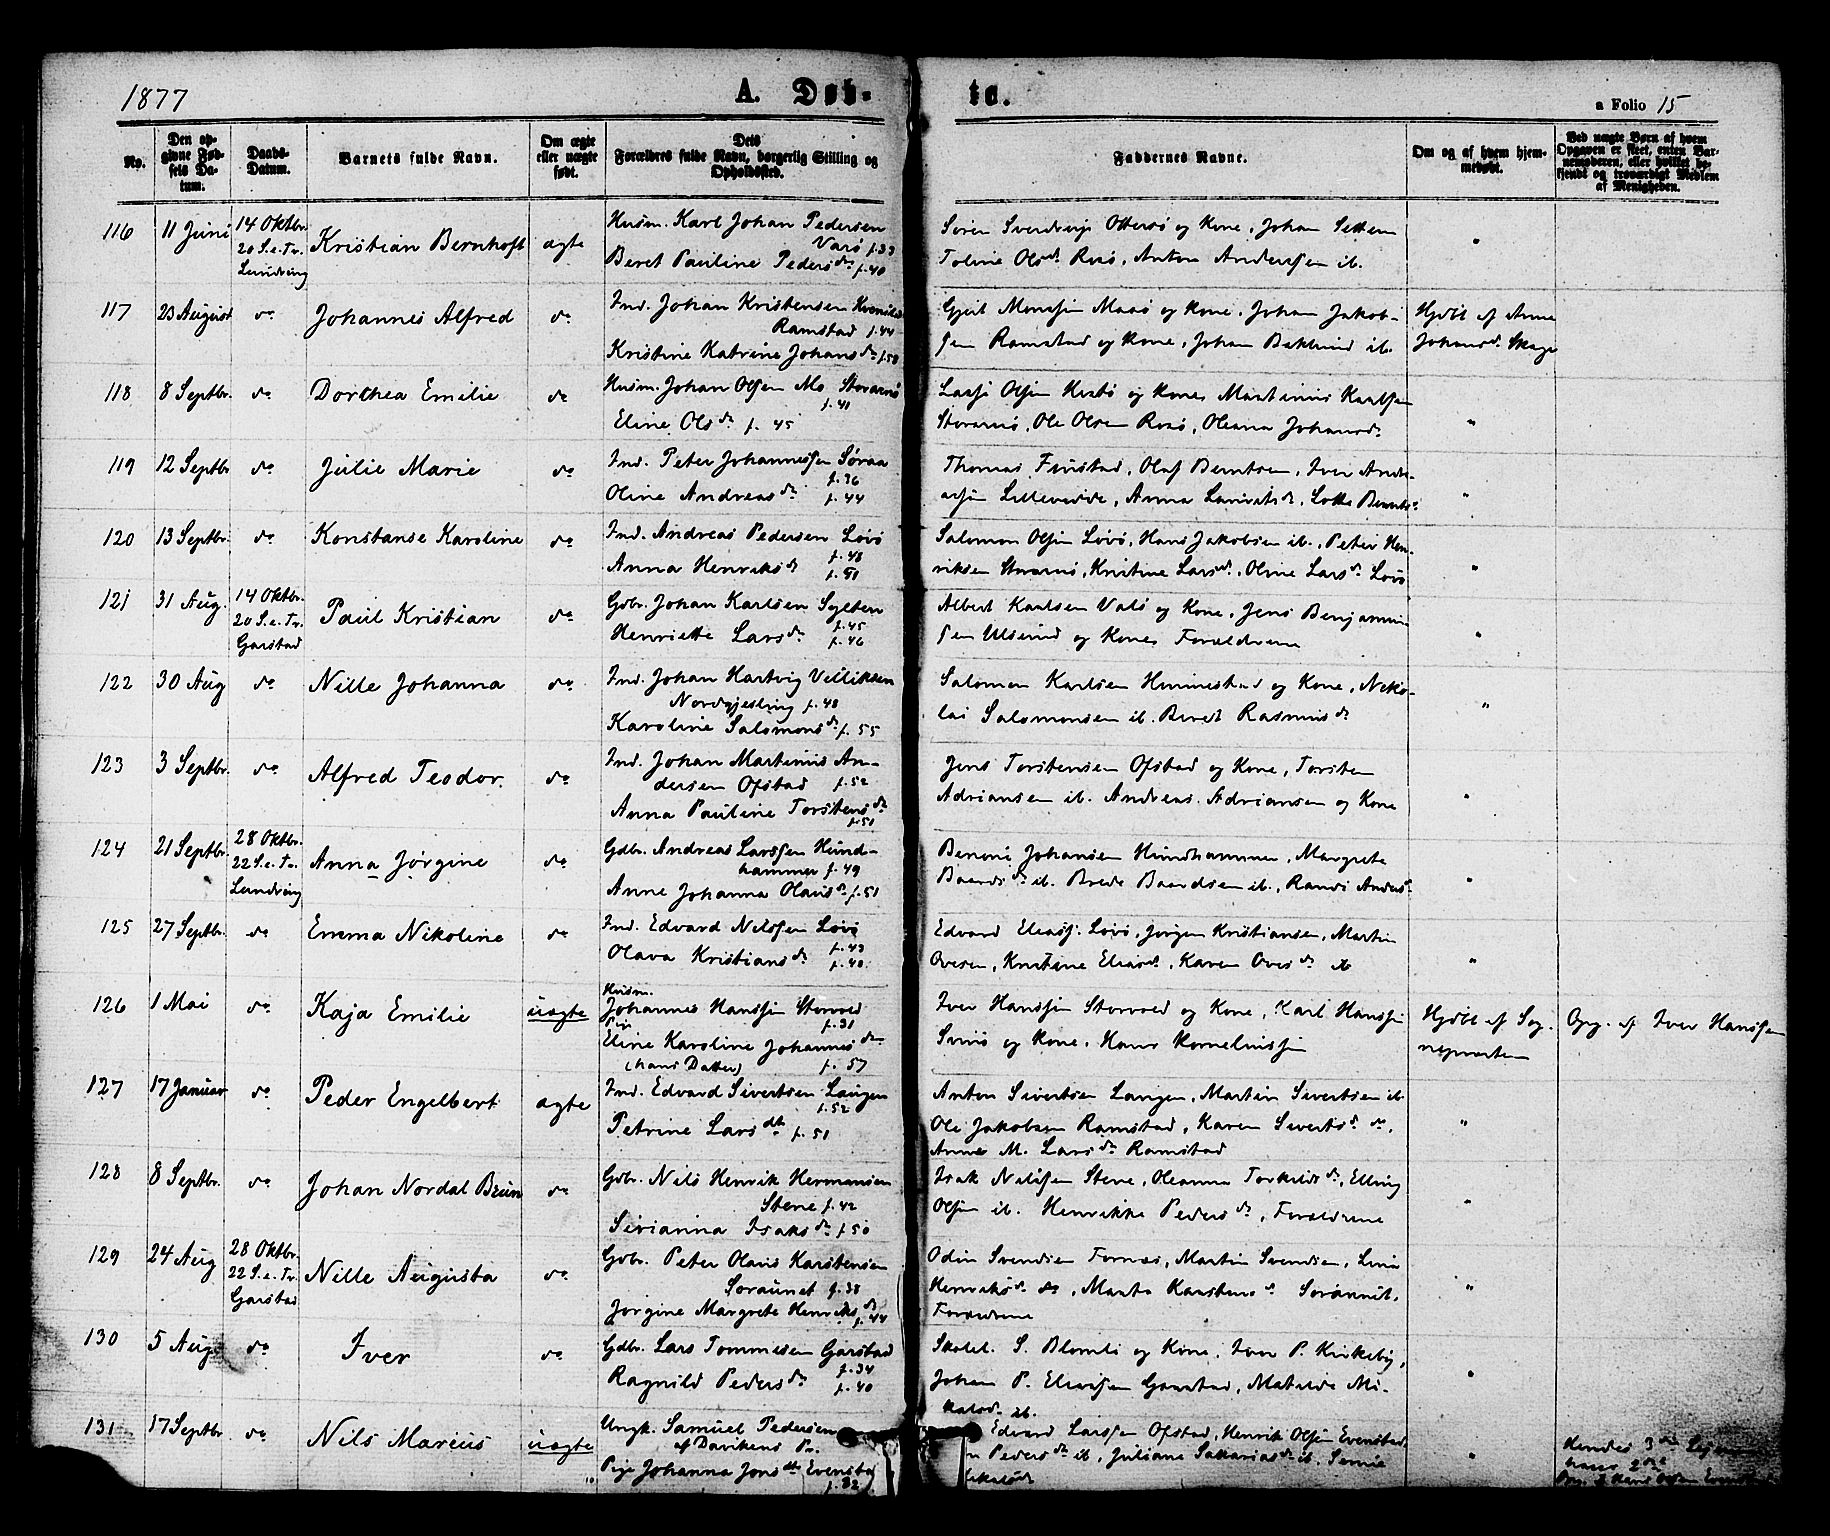 1877
A. Døb-
te.
a Folio 15
No.
Den op-
givne Fød-
sels Da-
tum.
Daabs-
Datum.
Barnets fulde Navn.
Om ægte
eller uægte
født.
Dets
Forældres fulde Navn, borgerlig Stilling og
Opholdssted.
Faddernes Navne.
Om og af hvem hjem-
medøbt.
Ved uægte Børn af hvem
Opgaven er skeet, enten Bar-
nemoderen, eller hvilket be-
kjendt og troværdigt Medlem
af Menigheden.
116 11 Juni 14 Oktbr. 20 S.e.Tr. Lundring Kristian Bernhoft ægte
Husm. Karl Johan Pedersen
Varø f.33
Beret Pauline Pedersdr f.40
Søren Ottersø og Kone, Johan
Toline Olsdr Risø, Anton Anderssen ib. "
117 23 August do Johannes Alfred do
Ind. Johan Kristensen
Ramstad f.44
Kristine Katrine Johansdr f.50
Monssen og Kone, Johan Jakob-
sen Ramstad og Kone, Johan ib.
Hjdbt af Anne
Johansdr Skage
118 8 Septbr. do Dorthea Emilie do
Husm. Johan Olsen Mo Storarnø
f.41
Eline Olsdr f.45
Olsen og Kone Martinus Karlsen
Storarnø, Ole Olsen Risø, Oleana Johansdr "
119 12 Septbr do Julie Marie do
Ind. Peter Johannessen Søraa
f.36
Oline Andreasdr f.44
Thomas Finstad, Olaf Berntsen, Iver Andre-
assen, Anna, Lotte Berntsdr "
120 13 Septbr. do Konstanse Karoline do
Ind. Andreas Pedersen Løvø
f.48
Anna Henriksdr f.51
Salomon Olsen Løvø, Hans Jakobsen ib., Peter Hen-
riksen Storarnø, Kristine Larsdr, Oline Larsdr Løvø "
121 31 Aug. 14 Oktbr. 20 S.e.Tr. Garstad Paul Kristian do
Gdbr. Johan Karlsen Sylten
f.45
Henriette Larsdr f.46
Albert Karlsen Valø og Kone, Jens Benjamin-
sen Ulsund og Kone Forældrene "
122 30 Aug do Nille Johanna do
Ind. Johan Hartvig Velliksen
Nordgjesling f.48
Karoline Salomonsdr f.55
Salomon Karlsen Hunnestad og Kone, Niko-
lai Salomonsen ib. Beret Rasmusdr "
123 3 Septbr. do Alfred Teodor. do
Ind. Johan Martinus An-
dersen Ofstad f.52
Anna Pauline Torstensdr
f.51
Jens Torstensen Ofstad og Kone, Torsten
Adriansen ib. Andreas Adriansen og Kone "
124 21 Septbr. 28 Oktbr. 22 S.e.Tr. Lundring Anna Jørgine do
Gdbr. Andreas Larssen Hund-
hammer f.49
Anne Johanna Olausdr f.51
Benoni Johansen Hundhammer, Margrete
Baardsdr ib. Brede Baardsen ib., Randi Andersdr "
125 27 Septbr. do Emma Nikoline do
Ind. Edvard Nilssen Løvø
f.43
Olava Kristiansdr f.40
Edvard Eliass. Løvø, Jørgen Kristiansen, Martin
Ovesen, Kristine Eliasdr, Karen Ovesdr ib "
126 1 Mai do Kaja Emilie uægte
Husm.
Johannes Hanssen Storvold
Pige f.31
Eline Karoline Johannesdr
(hans Datter) f.57
Iver Hanssen Storvold og Kone, Karl Hanssen
Svinø og Kone, Hans Kornelinssen
Hjdbt af Sog-
nepræsten
Opg. af Iver Hanssen
127 17 Januar do Peder Engelbert ægte
Ind. Edvard Sivertsen Laugen
f.52
Petrine Larsdtr f.51
Anton Sivertsen Laugen, Martin Sivertsen ib
Ole Jakobsen Ramstad, Karen Sivertsdr do,
Anne M. Larsdr Ramstad "
128 8 Septbr. do Johan Nordal Brun do
Gdbr. Nils Henrik Hermansen
Stene f.42
Sirianna Isaksdr f.50
Isak Nilssen Stene, Oleanna Torkildsdr, Elling
Olsen ib. Henrikke Pedersdr, Forældrene "
129 24 Aug 28 Oktbr. 22 S.e.Tr. Garstad Nille Augusta do
Gdbr. Peter Olaus Karstensen
Søraunet f.38
Jørgine Margrete Henriksdr
f.44
Odin Svendsen Fornes, Martin Svendsen, Lina
Henriksdr do, Marta Karstensdr Søraunet,
Forældrene "
130 5 Aug. do Iver do
Gdbr. Lars Tommesen Garstad
f.34
Ragnild Pedersdr f.40
Skolel. S. Blomli og Kone, Iver P. Kirkeby,
Johan P. Eliassen Garstad, Matilde Mi-
kalsdr. ib. "
131 17 Septbr do Nils Marius uægte
Ungk. Samuel Pedersen
af Davikens Pr.
Pige Johanna Jonsdtr Evenstad
f.32
Edvard Larssen Ofstad, Henrik Olsen Evenstad,
Pedersdr ib, Juliane Sakkariasdr ib. "
Hendes 3die
hans 2det